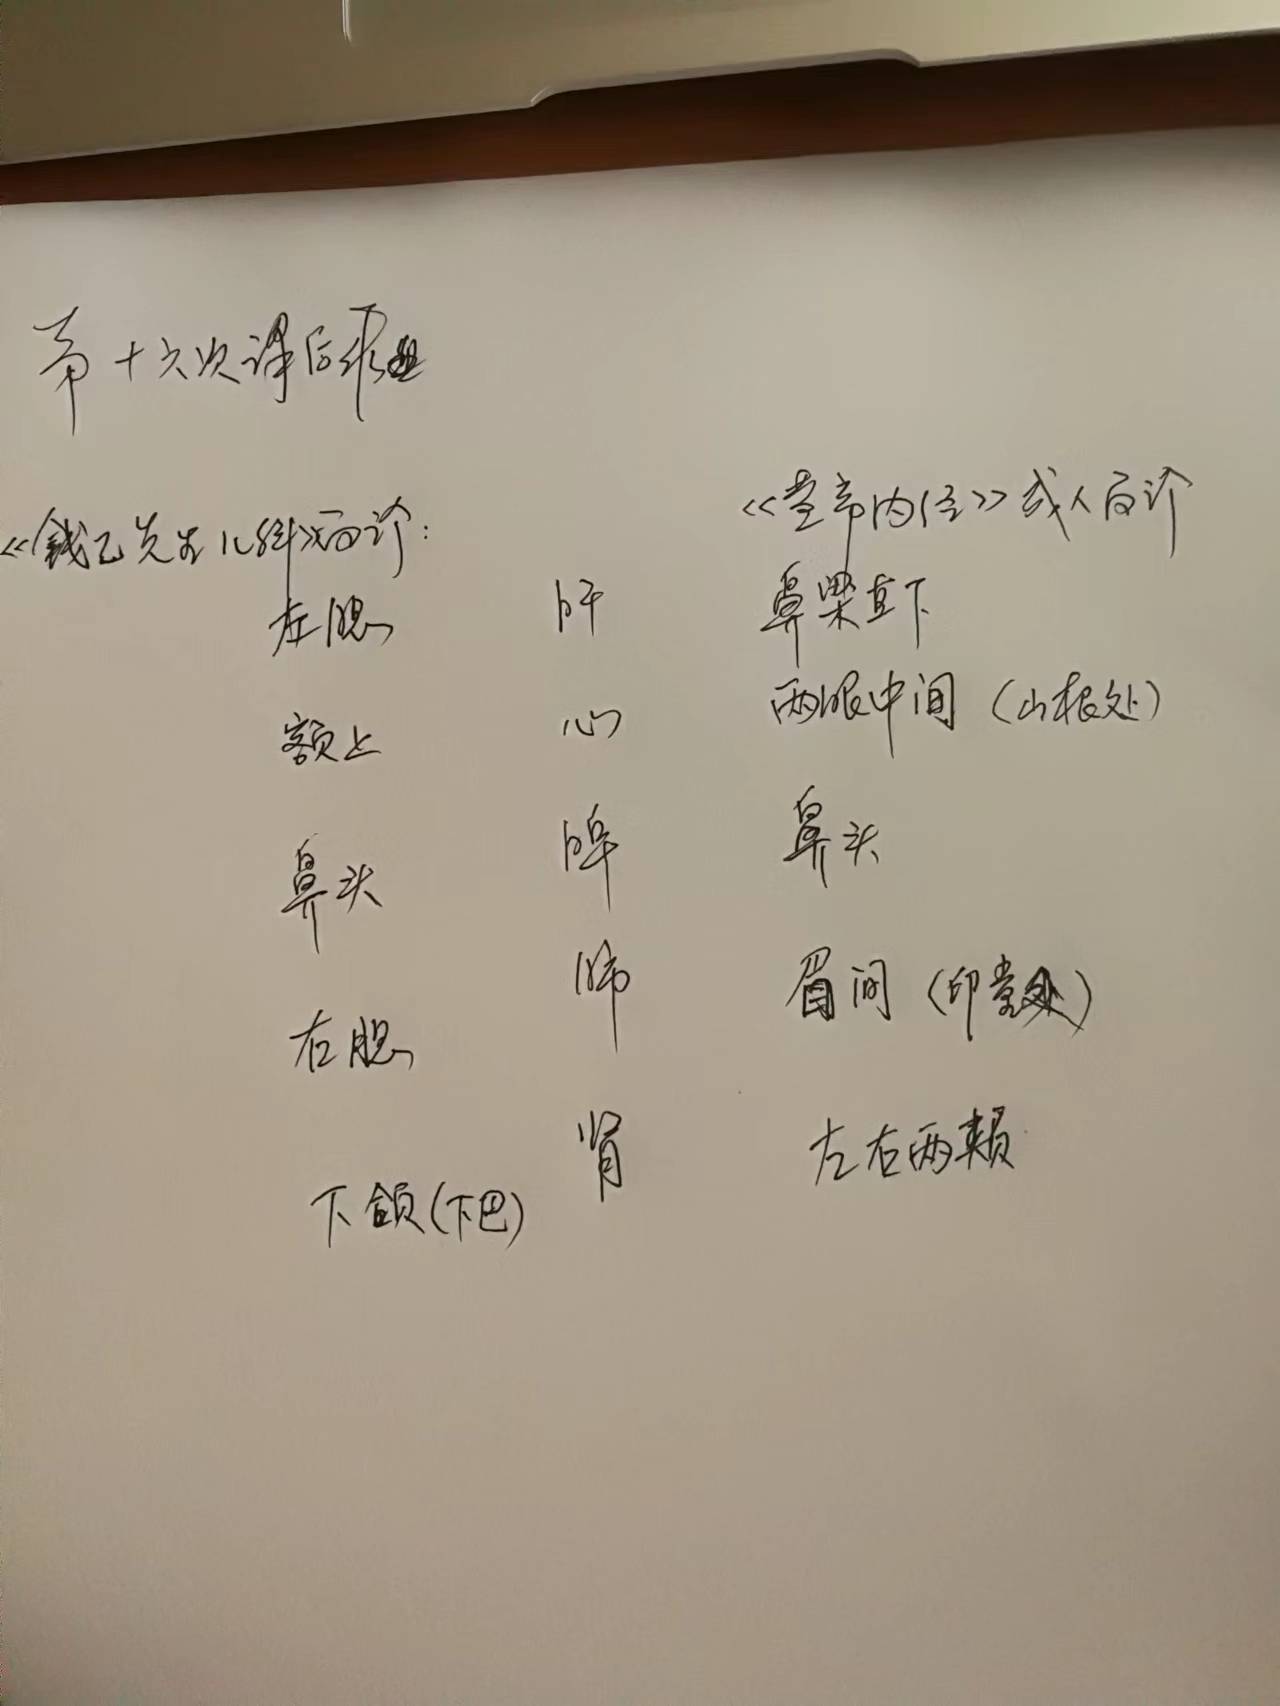 第十六次课后作业
《钱乙先生儿科》面诊：
《黄帝内经》成人面诊
左腮 肝 鼻梁直下
额上 心 两眼中间（山根处）
鼻头 脾 鼻头
右腮 肺 眉间（印堂处）
下颌（下巴） 肾 左右两颊